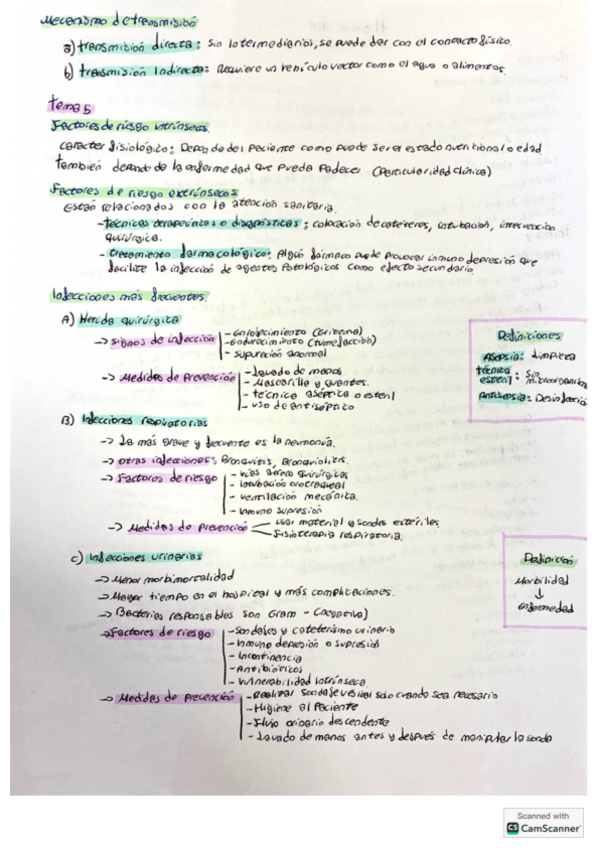 Mecanismo de transmisión
a) transmisión directa: Sin intermediarios, se puede dar con el contacto físico.
b) transmisión Indirecta: Requiere un vehículo vector como el agua o alimentos.
tema 5
Factores de riesgo intrínsecos.
Caracter fisiológico: Depende del Paciente como puede ser el estado nutritional o edad
también depende de la enfermedad que pueda padecer (Particularidad clínica)
Factores de riesgo extrínsecos:
Están relacionados con la atención sanitaria.
-técnicas terapeúticas o diagnósticas: colocación de catéteres, intubación, intervención
quirúrgica.
- tratamiento farmacológico: Algún fármaco puede provocar inmunodepresión que
facilite la infección de agentes Patológicos como efecto secundario.
Infecciones más frecuentes.
A) Herida quirúrgica
→ signos de infección
- Enrojecimiento (Eritema)
- Endurecimiento (tumefacción)
- supuración anormal
→ Medidas de Prevención
- Lavado de manos
- Mascarilla y guantes.
- técnica aséptica o esteril
- uso de antiséptico
Definiciones
Asepsia: Limpieza
técnica esteril: Sin microorganis
Antisepsia: Desinfecció
B) Infecciones respiratorias
→ la más grave y frecuente es la neumonía.
→ otras infecciones: Bronquitis, Bronquiolitis.
→ Factores de riesgo
- vías aéreas quirúrgicas
- intubación orotraqueal
- ventilación mecánica.
- inmuno supresión
→ Medidas de Prevención
usar material y sondas estériles.
Fisioterapia respiratoria.
C) Infecciones urinarias
→ Menor morbimortalidad
→ Mayor tiempo en el hospital y más complicaciones.
→ Bacterias responsables son Gram - (negativa)
→ Factores de riesgo
- Sondajes y cateterismo urinario
- Inmuno depresión o supresión
- Incontinencia
- Antibióticos
- Vulnerabilidad intrínseca.
→ Medidas de Prevención
- Realizar Sondaje vesical solo cuando sea necesario
- Higiene al Paciente
- Flujo urinario descendente
- Lavado de manos antes y después de manipular la sonda
Definición
Morbilidad
↓
enfermedad
Scanned with
CS CamScanner